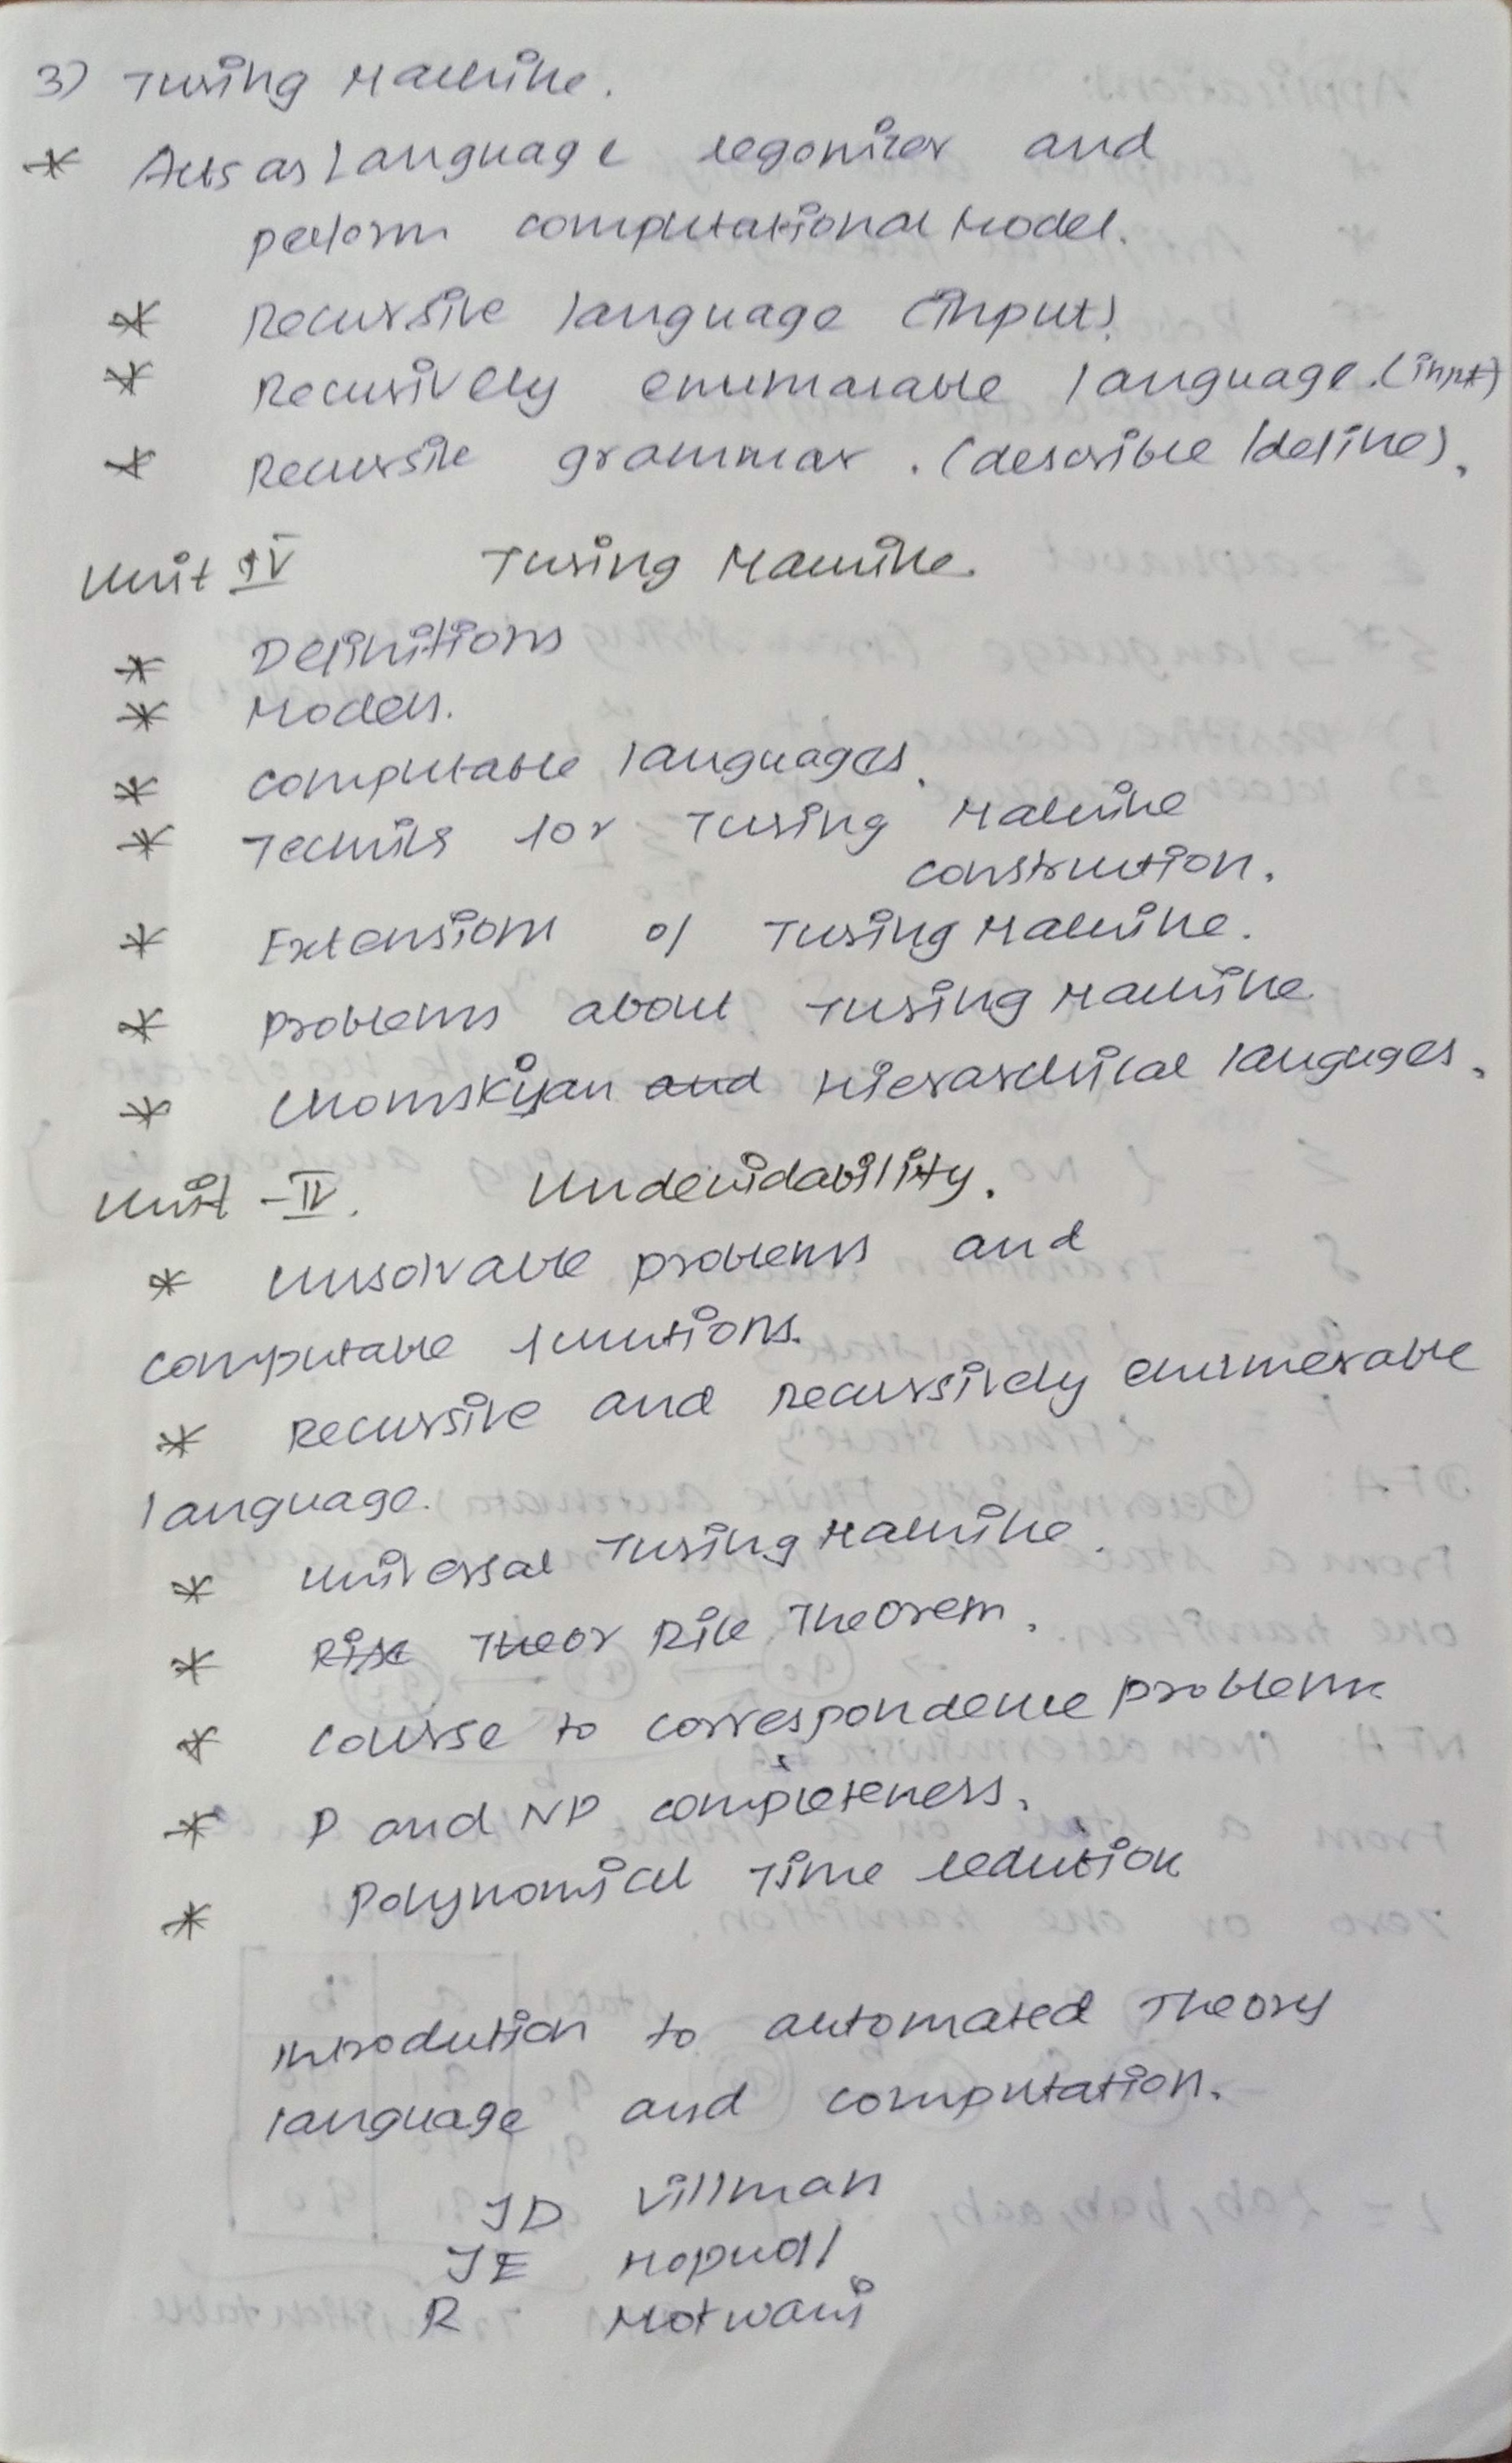 3) Turing Machine.
* Acts as Language regonizer and
perform computational Model.
* Recursive language (input)
* Recursively enumarable language. (input)
* Recursive grammar. (describe / define).
Unit IV Turing Machine.
* Definitions
* Models.
* computable languages.
* Technics for Turing Machine
construction.
* Extensions of Turing Machine.
* problems about Turing Machine
* chomskiyan and Hierarchical languges.
Unit - IV. Undecidability.
* unsolvable problems and
computable functions.
* Recursive and recursively enumerable
language.
* universal Turing Machine.
* Rise Theor Rice Theorem.
* course to correspondence problems
* P and NP completeness.
* Polynomical Time reduction
Introduction to automated Theory
language and computation.
JD Villman
JE Hopwoll
R Motwani